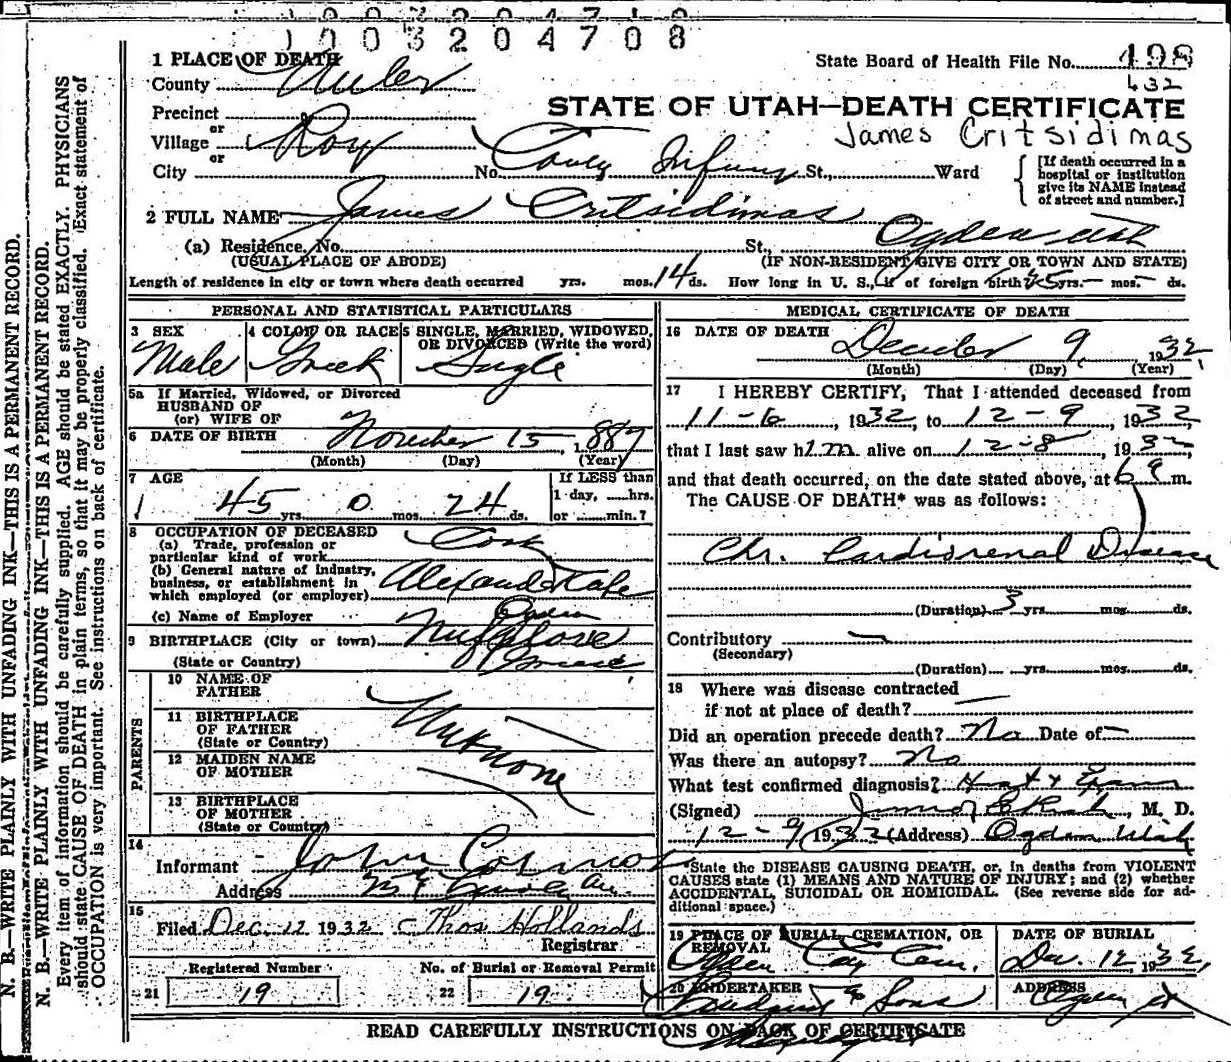 1003204708
1 PLACE OF DEATH
State Board of Health File No. 498
County Weber
632
Precinct
STATE OF UTAH—DEATH CERTIFICATE
or
Village Roy
James Critsidimas
or
City No. St., Ward
[If death occurred in a hospital or institution give its NAME instead of street and number.]
2 FULL NAME James Critsidimas
(a) Residence, No. St., Ogden Utah
(USUAL PLACE OF ABODE) (IF NON-RESIDENT GIVE CITY OR TOWN AND STATE)
Length of residence in city or town where death occurred yrs. mos. 14 ds. How long in U. S., if of foreign birth? 25 yrs. — mos. — ds.
PERSONAL AND STATISTICAL PARTICULARS
3 SEX 4 COLOR OR RACE 5 SINGLE, MARRIED, WIDOWED, OR DIVORCED (Write the word)
Male Greek Single
5a If Married, Widowed, or Divorced
HUSBAND OF
(or) WIFE OF
6 DATE OF BIRTH November 15 1887
(Month) (Day) (Year)
7 AGE If LESS than
1 day, hrs.
45 yrs. 0 mos. 24 ds. or min.?
8 OCCUPATION OF DECEASED
(a) Trade, profession or
particular kind of work Cook
(b) General nature of industry,
business, or establishment in
which employed (or employer) Alexand Kafe
(c) Name of Employer Ogden
9 BIRTHPLACE (City or town)
(State or Country) Greece
PARENTS
10 NAME OF FATHER
11 BIRTHPLACE OF FATHER (State or Country)
Unknone
12 MAIDEN NAME OF MOTHER
13 BIRTHPLACE OF MOTHER (State or Country)
14
Informant John Cosmos
Address
15
Filed Dec. 12 1932 Thos Hollands
Registrar
Registered Number No. of Burial or Removal Permit
21 19 22 19
MEDICAL CERTIFICATE OF DEATH
16 DATE OF DEATH December 9, 1932
(Month) (Day) (Year)
17 I HEREBY CERTIFY, That I attended deceased from
11-6, 1932, to 12-9, 1932,
that I last saw him alive on 12-8, 1932,
and that death occurred, on the date stated above, at 6 a m.
The CAUSE OF DEATH* was as follows:
Chr. Cardiorenal Disease
(Duration) 3 yrs. mos. ds.
Contributory —
(Secondary)
(Duration) yrs. mos. ds.
18 Where was disease contracted
if not at place of death? —
Did an operation precede death? No Date of —
Was there an autopsy? No
What test confirmed diagnosis?
(Signed) , M. D.
12-9, 1932 (Address) Ogden Utah
*State the DISEASE CAUSING DEATH, or, in deaths from VIOLENT
CAUSES state (1) MEANS AND NATURE OF INJURY; and (2) whether
ACCIDENTAL, SUICIDAL OR HOMICIDAL. (See reverse side for additional space.)
19 PLACE OF BURIAL, CREMATION, OR REMOVAL DATE OF BURIAL
Ogden City Cem. Dec. 12, 1932,
20 UNDERTAKER ADDRESS
& Sons Ogden Ut
READ CAREFULLY INSTRUCTIONS ON BACK OF CERTIFICATE
N. B.—WRITE PLAINLY WITH UNFADING INK—THIS IS A PERMANENT RECORD.
N. B.—WRITE PLAINLY WITH UNFADING INK—THIS IS A PERMANENT RECORD.
Every item of information should be carefully supplied. AGE should be stated EXACTLY. PHYSICIANS
should state CAUSE OF DEATH in plain terms, so that it may be properly classified. Exact statement of
OCCUPATION is very important. See instructions on back of certificate.